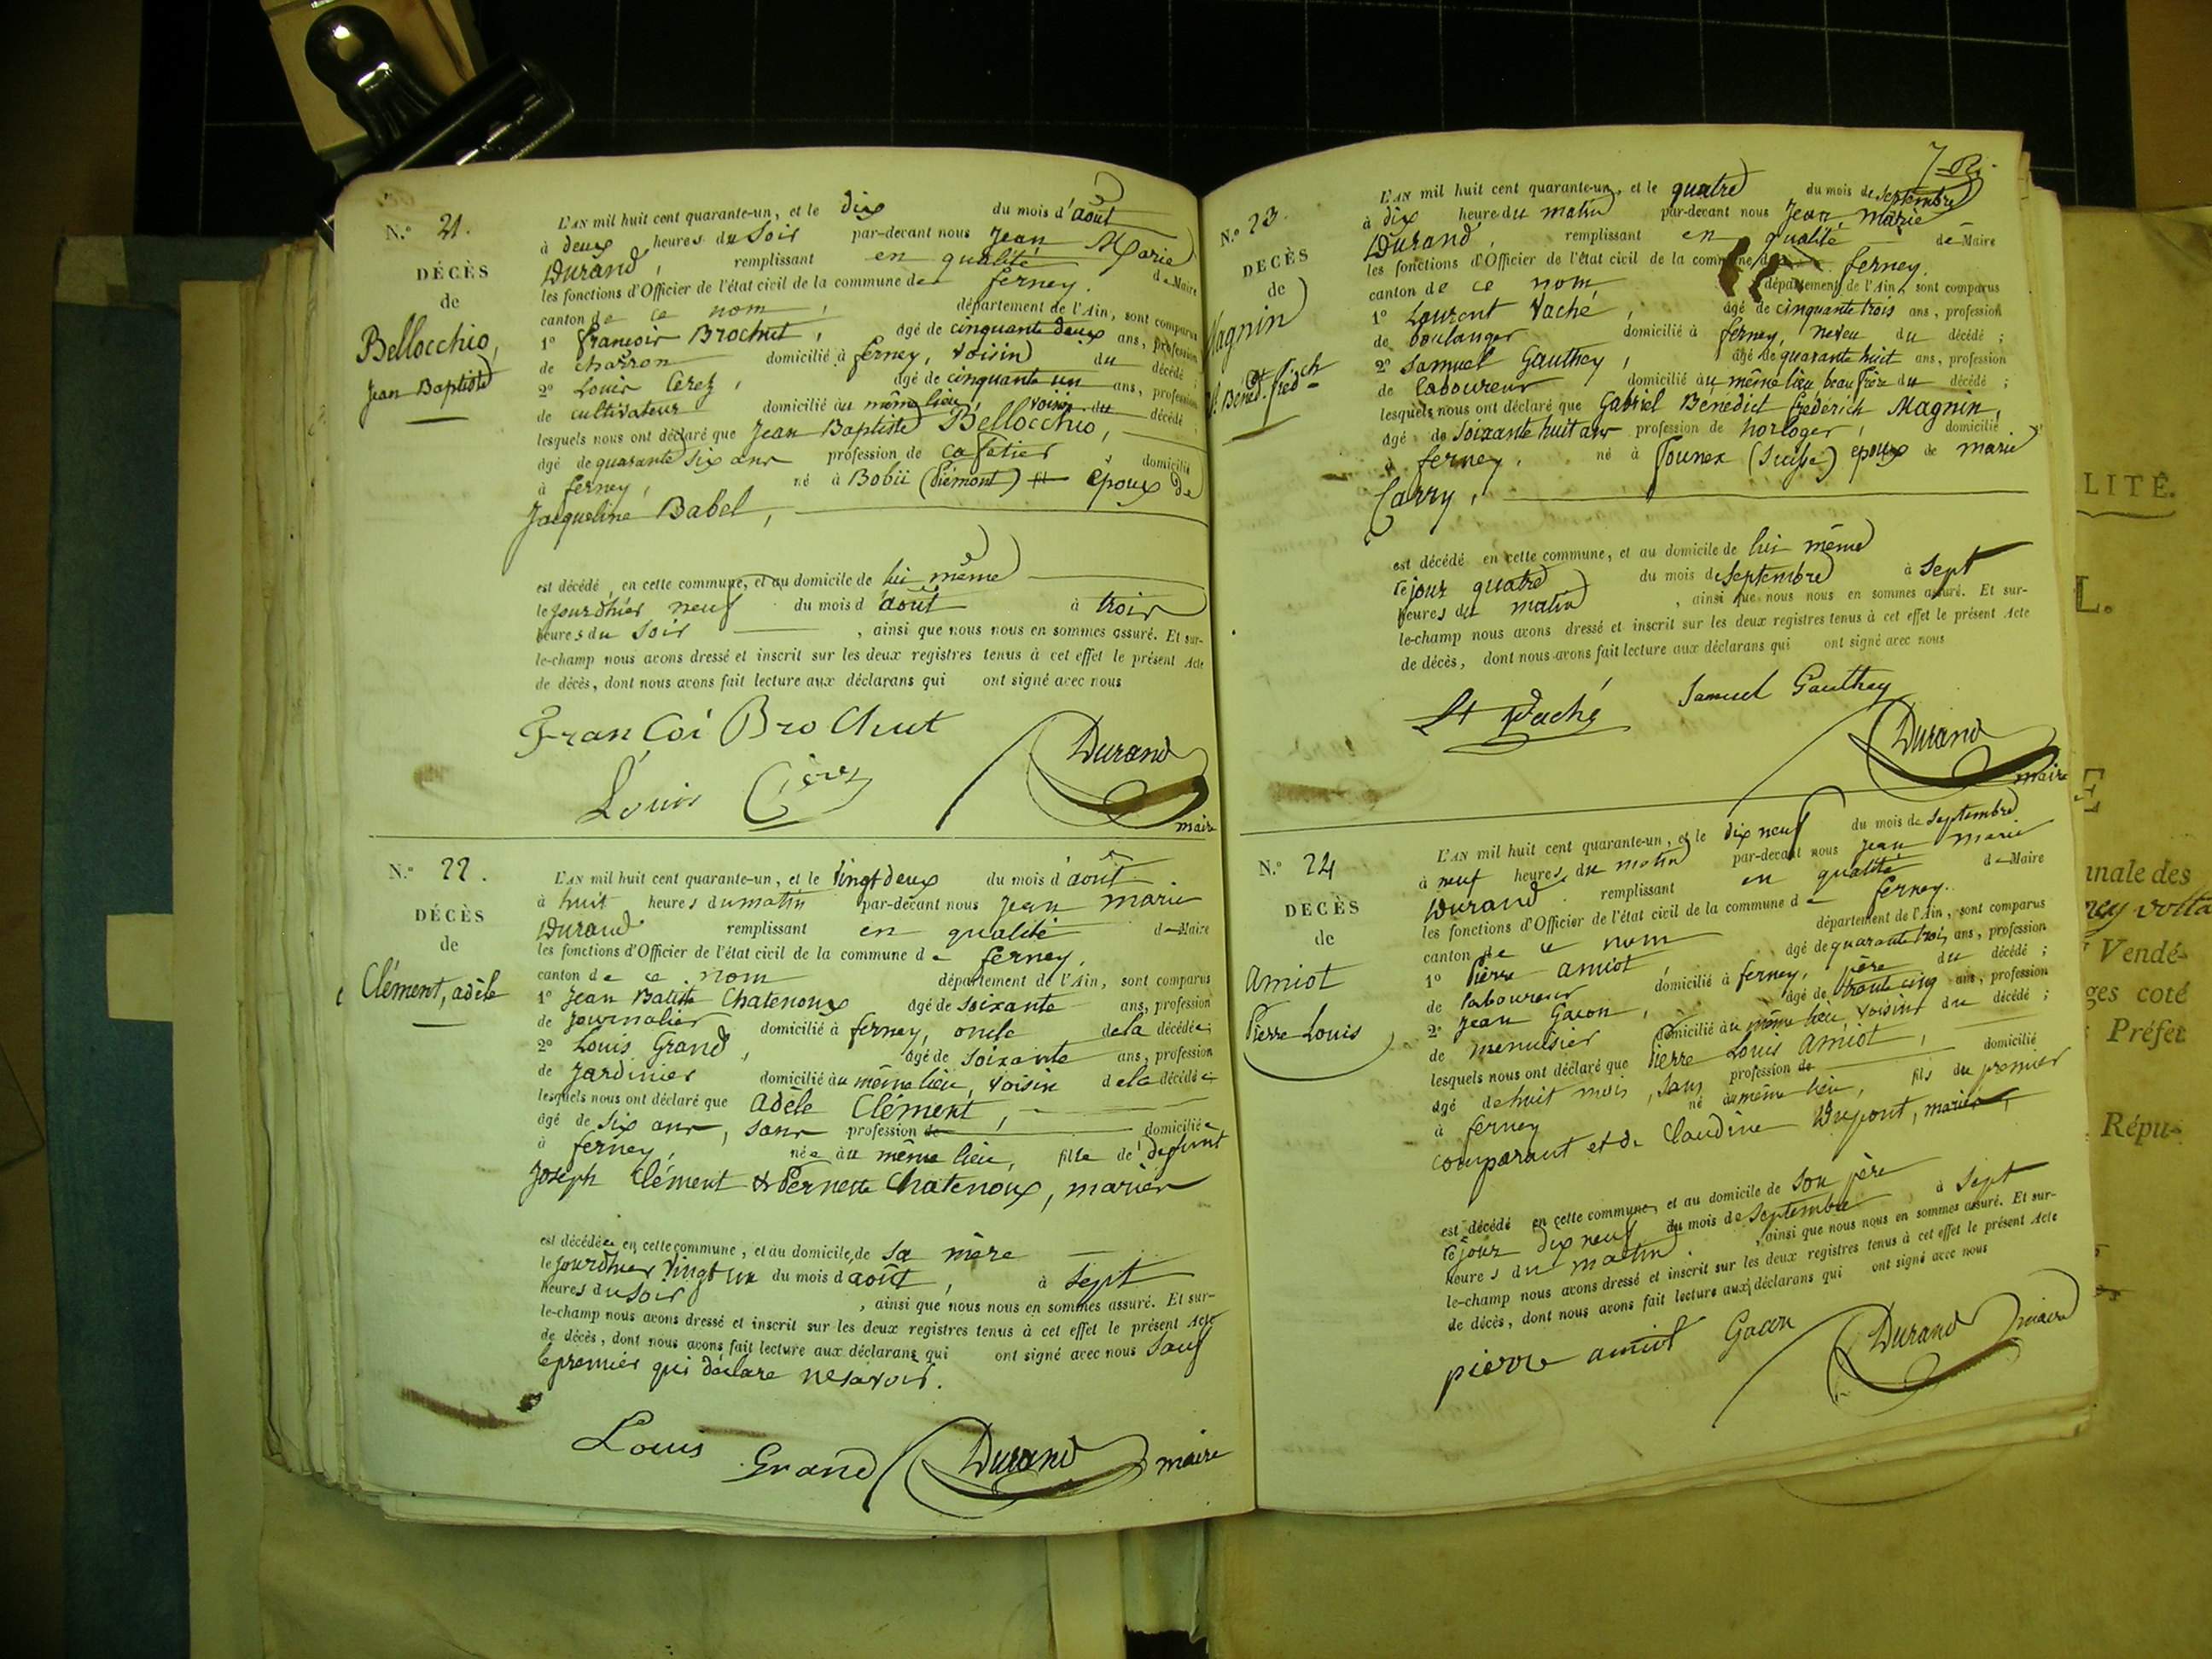 N.° 21.
DÉCÈS
de
Bellocchio,
Jean Baptiste
L'AN mil huit cent quarante-un, et le dix du mois d'août
à deux heures du Soir par-devant nous Jean Marie
Durand, remplissant en qualité de Maire
les fonctions d'Officier de l'état civil de la commune de ferney.
canton de ce nom, département de l'Ain, sont comparus
1° françois Brochut, âgé de cinquante deux ans, profession
de charron domicilié à ferney, voisin du décédé ;
2° Louis Cerez, âgé de cinquante un ans, profession
de cultivateur domicilié au même lieu, voisin du décédé ;
lesquels nous ont déclaré que Jean Baptiste Bellocchio,
âgé de quarante six ans profession de cafetier, domicilié
à ferney, né à Bobii (Piémont) époux de
Jacqueline Babel,
est décédé en cette commune, et au domicile de lui même
le jourdhier neuf du mois d'août à trois
heures du Soir, ainsi que nous nous en sommes assuré. Et sur-
le-champ nous avons dressé et inscrit sur les deux registres tenus à cet effet le présent Acte
de décès, dont nous avons fait lecture aux déclarans qui ont signé avec nous
Fran Coi Bro Chut
Louis Cerez
Durand
maire
N.° 22.
DÉCÈS
de
Clément, adèle
L'AN mil huit cent quarante-un, et le vingt deux du mois d'août
à huit heures du matin par-devant nous Jean marie
Durand remplissant en qualité de Maire
les fonctions d'Officier de l'état civil de la commune de ferney,
canton de ce nom département de l'Ain, sont comparus
1° Jean Batiste Chatenoux âgé de soixante ans, profession
de journalier domicilié à ferney, oncle de la décédée ;
2° Louis Grand, âgé de soixante ans, profession
de Jardinier domicilié au même lieu, voisin de la décédée
lesquels nous ont déclaré que Adèle Clément,
âgé de six ans, sans profession de domiciliée
à ferney, née au même lieu, fille de défunt
Joseph Clément & Pernette Chatenoux, mariés
est décédée en cette commune, et au domicile de sa mère
le jourdhier vingt un du mois d'août, à sept
heures du soir, ainsi que nous nous en sommes assuré. Et sur-
le-champ nous avons dressé et inscrit sur les deux registres tenus à cet effet le présent Acte
de décès, dont nous avons fait lecture aux déclarans qui ont signé avec nous sauf
le premier qui déclare ne savoir.
Louis Grand Durand maire
7
N.° 23.
DÉCÈS
de
Magnin
L'AN mil huit cent quarante-un, et le quatre du mois de septembre
à dix heure du matin par-devant nous Jean marie
Durand, remplissant en qualité de Maire
les fonctions d'Officier de l'état civil de la commune de ferney.
canton de ce nom, département de l'Ain, sont comparus
1° Laurent Vaché, âgé de cinquante trois ans, profession
de boulanger domicilié à ferney, neveu du décédé ;
2° Samuel Gauthey, âgé de quarante huit ans, profession
de laboureur domicilié au même lieu beau frère du décédé ;
lesquels nous ont déclaré que Gabriel Bénédict frédérich Magnin,
âgé de soixante huit ans profession de horloger, domicilié
à ferney, né à founex (Suisse) époux de marie
Carry,
est décédé en cette commune, et au domicile de lui même
ce jour quatre du mois de septembre à sept
heures du matin, ainsi que nous nous en sommes assuré. Et sur-
le-champ nous avons dressé et inscrit sur les deux registres tenus à cet effet le présent Acte
de décès, dont nous avons fait lecture aux déclarans qui ont signé avec nous
Lt Vaché Samuel Gauthey
Durand
maire
N.° 24
DÉCÈS
de
Amiot
Pierre Louis
L'AN mil huit cent quarante-un, et le dix neuf du mois de septembre
à neuf heures du matin par-devant nous Jean marie
Durand remplissant en qualité de Maire
les fonctions d'Officier de l'état civil de la commune de ferney.
canton de ce nom département de l'Ain, sont comparus
1° Pierre amiot, âgé de quarante trois ans, profession
de laboureur domicilié à ferney, père du décédé ;
2° Jean Gacon, âgé de trente cinq ans, profession
de menuisier domicilié au même lieu, voisin du décédé ;
lesquels nous ont déclaré que Pierre Louis Amiot,
âgé de huit mois, sans profession de domicilié
à ferney né au même lieu, fils du premier
comparant et de Claudine Dupont, mariés,
est décédé en cette commune, et au domicile de son père
ce jour dix neuf du mois de septembre à sept
heures du matin, ainsi que nous nous en sommes assuré. Et sur-
le-champ nous avons dressé et inscrit sur les deux registres tenus à cet effet le présent Acte
de décès, dont nous avons fait lecture aux déclarans qui ont signé avec nous
pierre amiot Gacon Durand maire
LITÉ.
L.
nnale des
Vendé-
ges coté
Préfet
Répu-